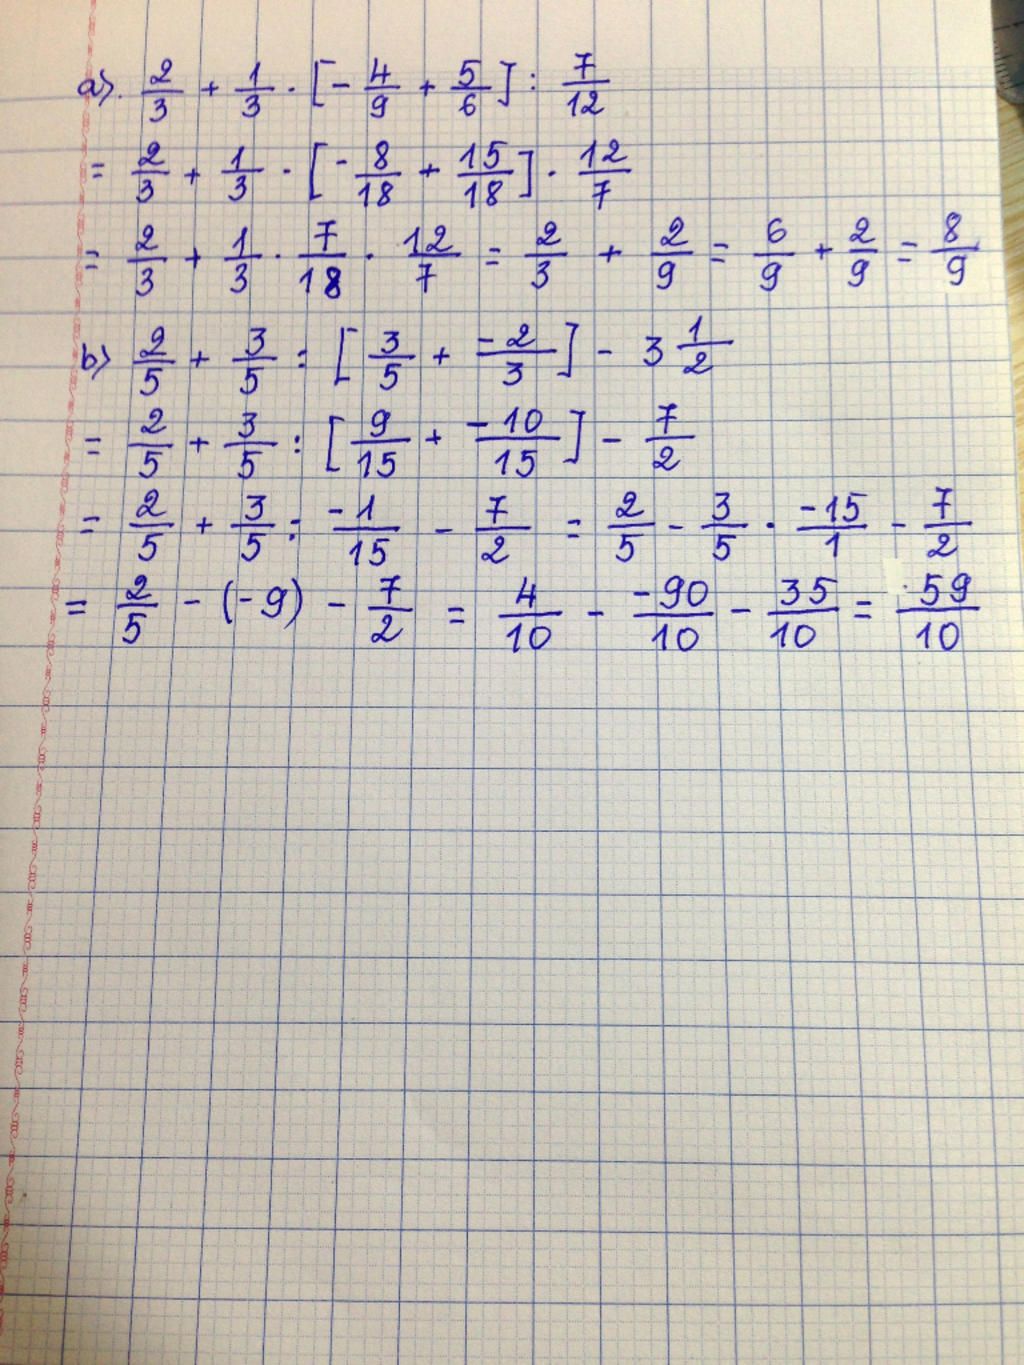 a). 2/3 + 1/3 . [- 4/9 + 5/6] : 7/12
= 2/3 + 1/3 . [- 8/18 + 15/18] . 12/7
= 2/3 + 1/3 . 7/18 . 12/7 = 2/3 + 2/9 = 6/9 + 2/9 = 8/9
b) 2/5 + 3/5 : [3/5 + -2/3] - 3 1/2
= 2/5 + 3/5 : [9/15 + -10/15] - 7/2
= 2/5 + 3/5 : -1/15 - 7/2 = 2/5 - 3/5 . -15/1 - 7/2
= 2/5 - (-9) - 7/2 = 4/10 - -90/10 - 35/10 = 59/10